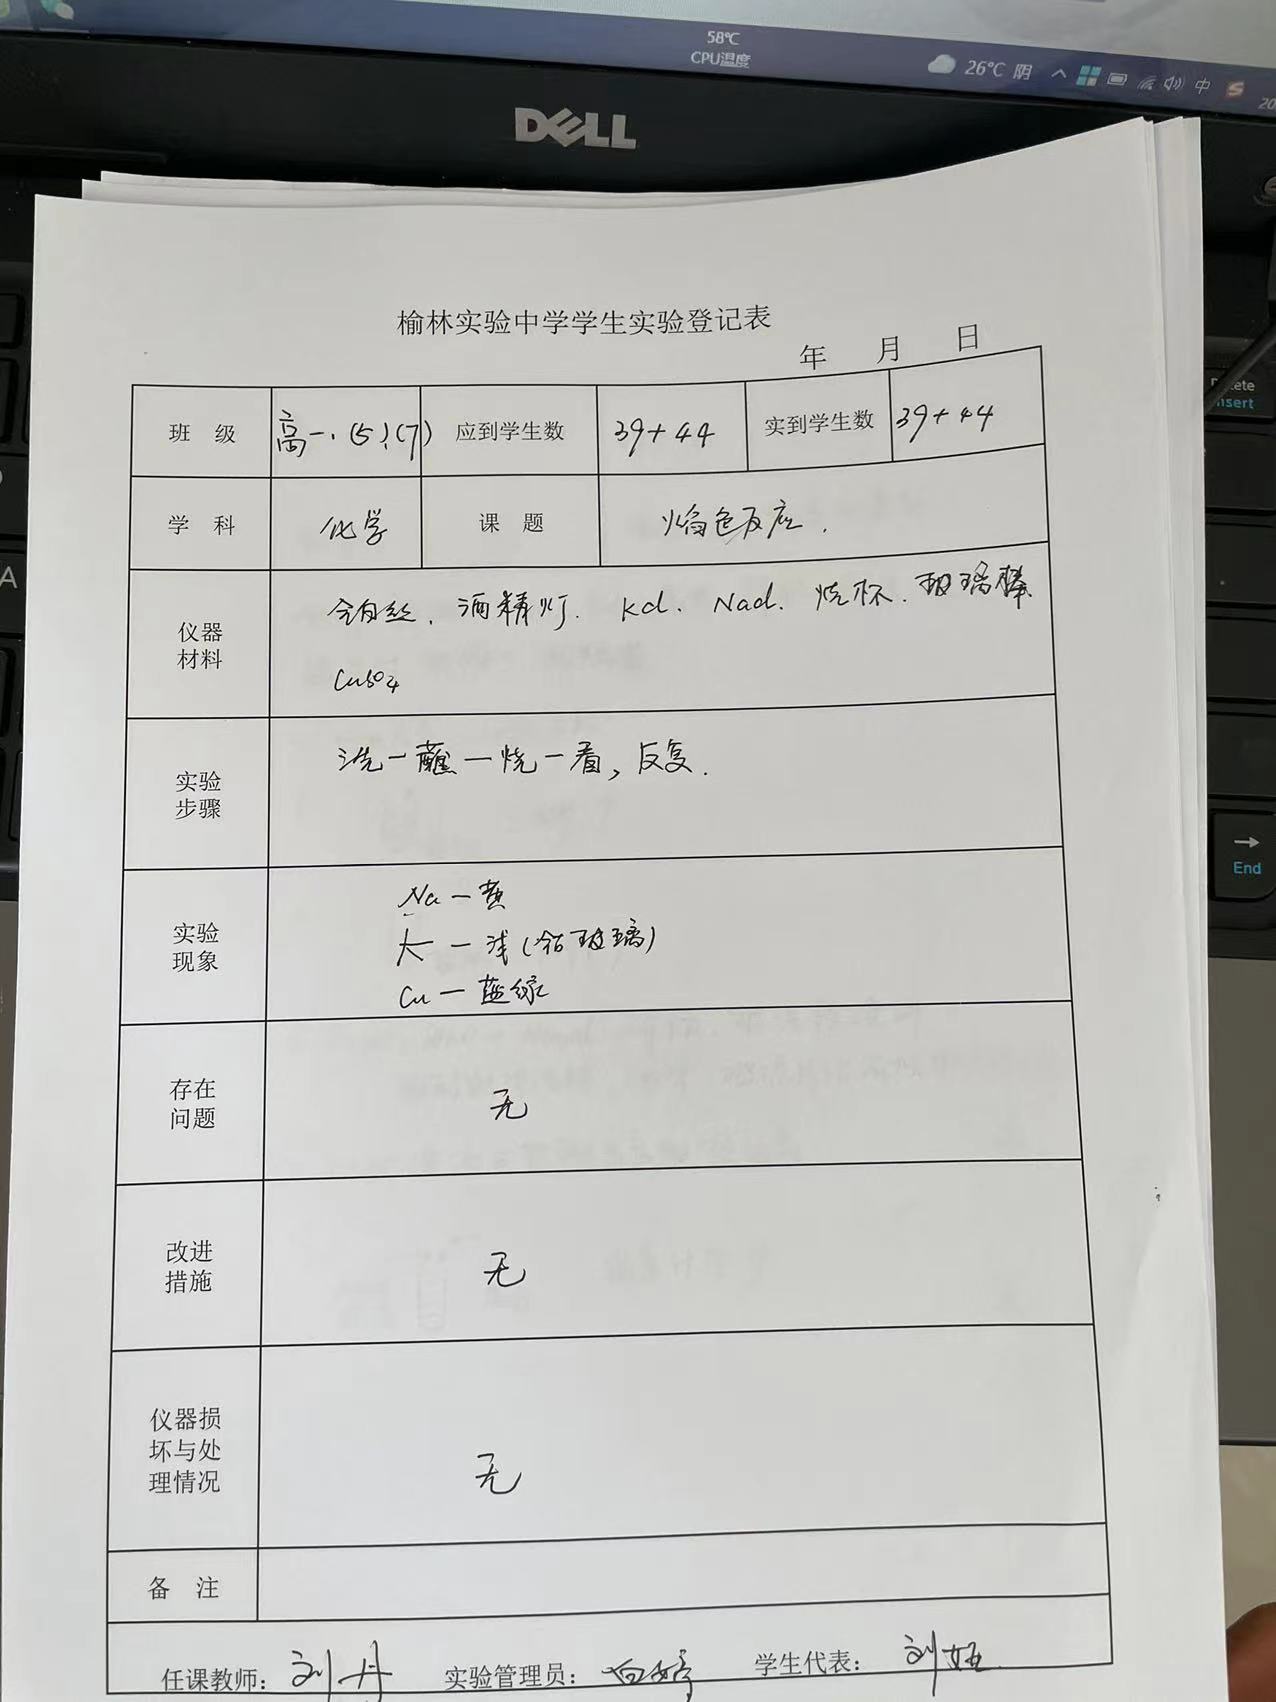 58℃
CPU温度
26℃ 阴
中
20
DELL
Delete
Insert
A
End
榆林实验中学学生实验登记表
年 月 日
班 级 高一.(5)(7) 应到学生数 39+44 实到学生数 39+44
学 科 化学 课 题 焰色反应.
仪器材料 铂丝. 酒精灯. kcl. Nacl. 烧杯. 玻璃棒
CuSO4
实验步骤 洗一蘸一烧一看, 反复.
实验现象 Na一黄
K一浅(钴玻璃)
Cu一蓝绿
存在问题 无
改进措施 无
仪器损坏与处理情况 无
备 注
任课教师: 刘丹 实验管理员: 学生代表: 刘娅